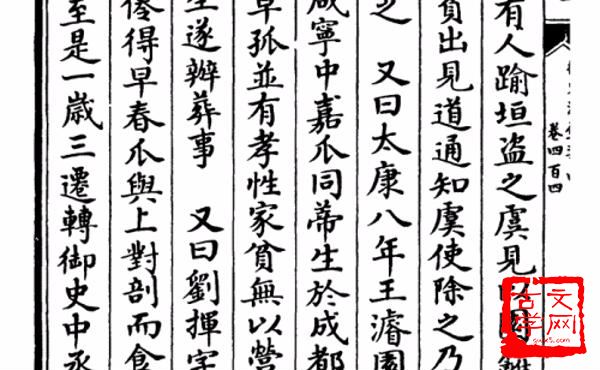 卷四百四
有人踰垣盜之虞見以園
負出見道通知虞使除之乃
之 又曰太康八年王濬園
咸寧中嘉瓜同蔕生於成都
早孤並有孝性家貧無以營
遂辦葬事 又曰劉揮字
俊得早春瓜與上對剖而食
至是一歲三遷轉御史中丞
古文学网